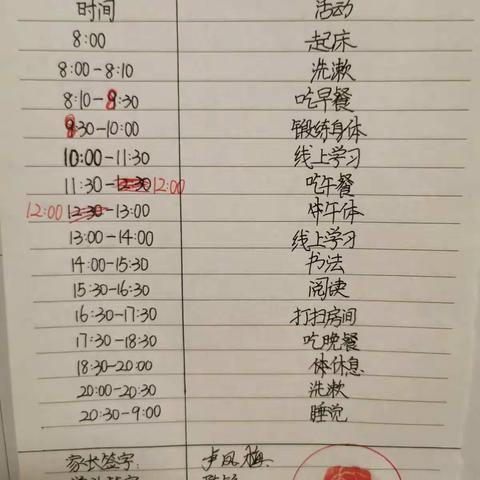 时间 活动
8:00 起床
8:00-8:10 洗漱
8:10-9:30 吃早餐
9:30-10:00 锻练身体
10:00-11:30 线上学习
11:30-12:30 12:00 吃午餐
12:00 12:30-13:00 午休
13:00-14:00 线上学习
14:00-15:30 书法
15:30-16:30 阅读
16:30-17:30 打扫房间
17:30-18:30 吃晚餐
18:30-20:00 休息
20:00-20:30 洗漱
20:30-9:00 睡觉
家长签字: 卢凤梅
签字